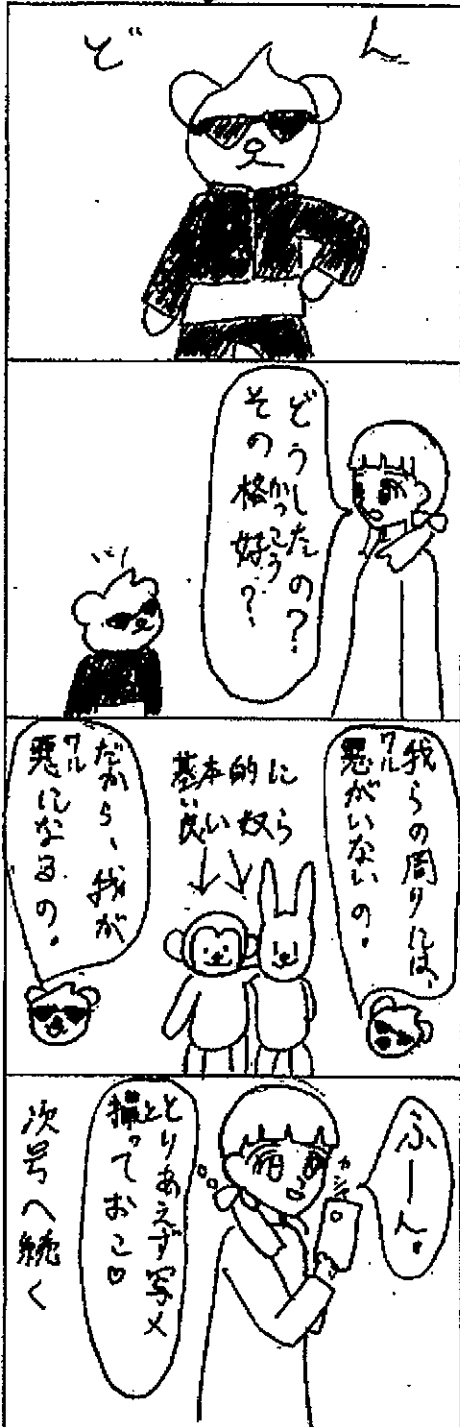 どん
どうしたの?
その格好?
我らの周りには、
悪がいないの。
基本的に
良い奴ら
だから、我が
悪になるの。
ふーん。
とりあえず写メ
撮っておこ♡
次号へ続く